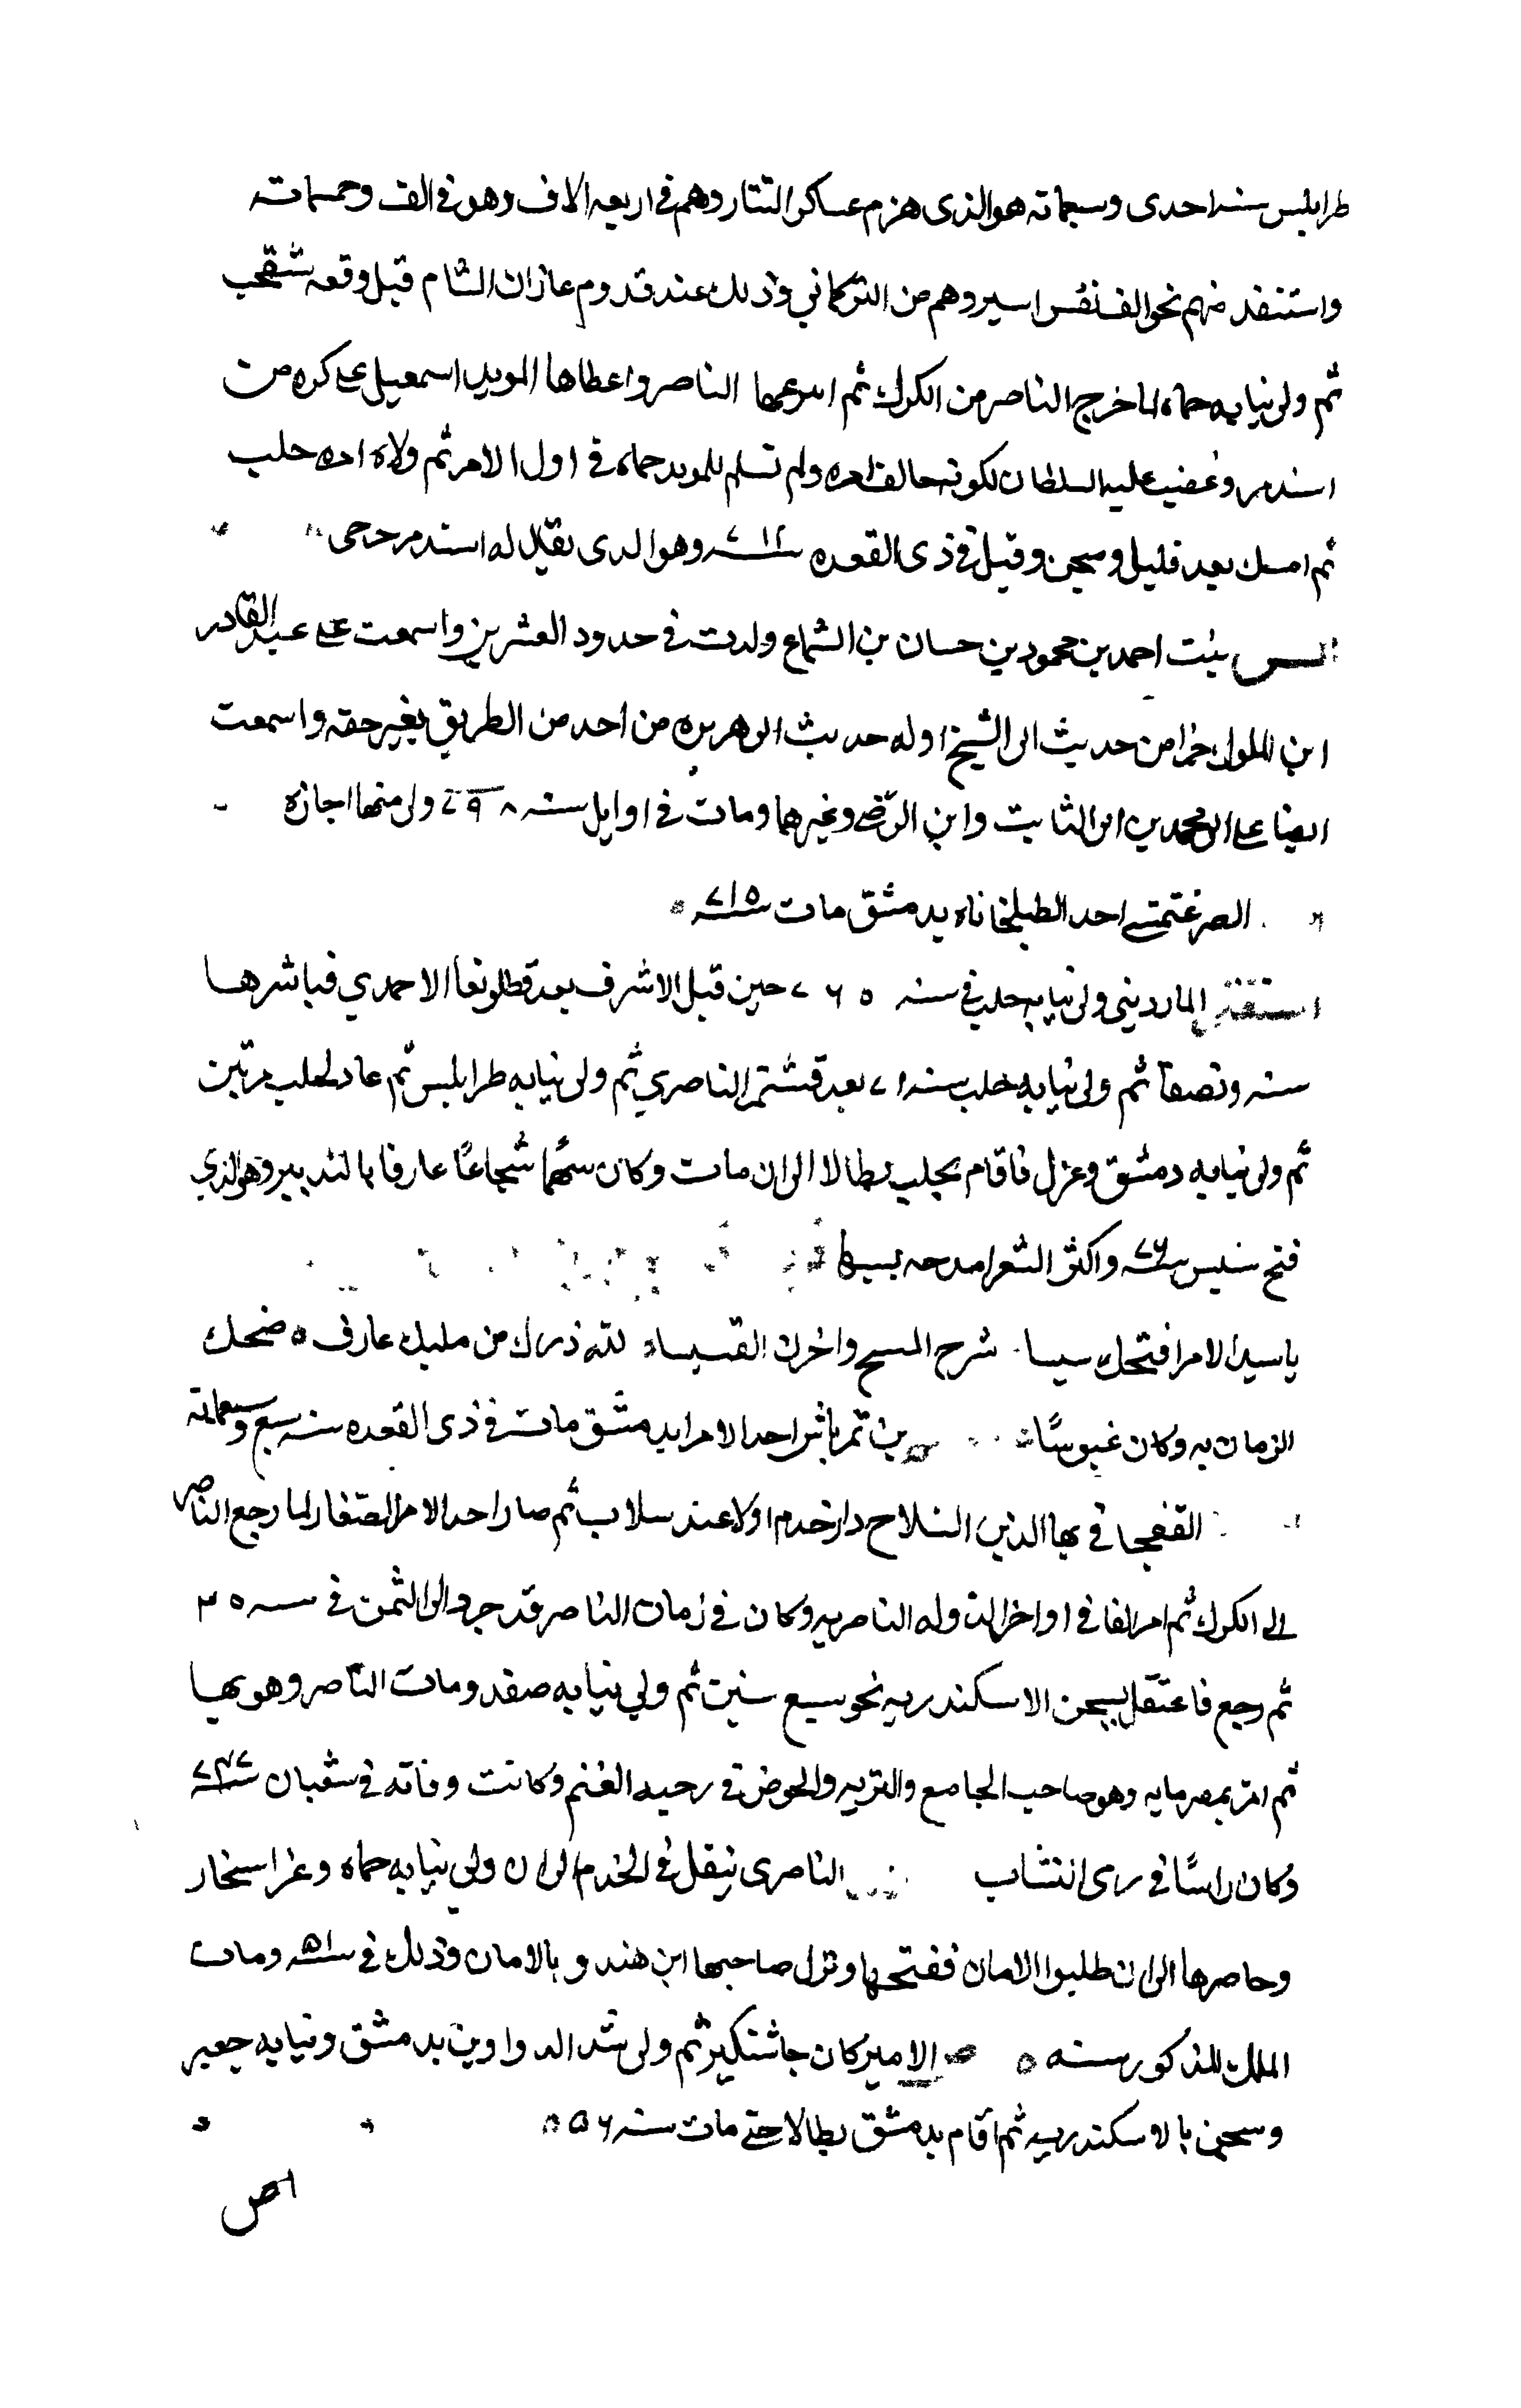 طرابلس سنه احدى وسبعمائه هو الذى هزم عساكر التتار وهم فى اربعه الاف وهو فى الف وخمسمائه
واستنفذ منهم نحو الف نفس اسير وهم من التركمانى وذلك عند قدوم غازان الشام قبل وقعه شقحب
ثم ولى نيابه حماه لما خرج الناصر من الكرك ثم الناصر واعطاها المويد اسمعيل على كره من
اسندمر وغضب عليه السلطان لكونه خالف امره ولم تسلم للمويد حماه فى اول الامر ثم ولاه حلب
ثم امسك بعد قليل وسجن وقتل فى ذى القعده سنه ٧١٢ وهو الذى يقال له اسندمر كرجى
بنت احمد بن محمود بن حسان بن الشماع ولدت فى حدود العشرين واسمعت على عبد القادر
ابن الملوك جزا من حديث ابى الشيخ اوله حديث ابى هريره من اخذ من الطريق بغير حقه واسمعت
ايضا على ابى محمد بن ابى الثابت وابن الرضى وغيرهما وماتت فى اوايل سنه ٧٩٨ ولى منها اجازه
الصرغتمشى احد الطبلخاناه بدمشق مات سنه ٧١٥
الماردينى ولى نيابه حلب فى سنه ٧٦٥ حين قبل الاشرف بعد قطلوبغا الاحمدي فباشرها
سنه ونصفا ثم ولى نيابه حلب سنه ٧١ بعد قشتمر الناصري ثم ولى نيابه طرابلس ثم عاد لحلب مرتين
ثم ولى نيابه دمشق وعزل فاقام بحلب بطالا الى ان مات وكان شهما شجاعا عارفا بالتدبير وهو الذي
فتح سيس سنه ٧٦ واكثر الشعرا مدحه بسببها
يا سيد الامرا فتحك سيسا شرح المسيح واخزن القسيسا لله درك من مليك عارف ه ضحك
الزمان به وكان عبوسا بن تمرباش احد الامرا بدمشق مات فى ذى القعده سنه سبع وسبعمائه
القفجاقى بها الدين السلاح دار خدم اولا عند سلار ثم صار احد الامرا الصغار لما رجع الناصر
الى الكرك ثم امر الفا فى اواخر الدوله الناصريه وكان فى زمان الناصر قد جرد الى اليمن فى سنه ٢٥
ثم رجع فاعتقل بسجن الاسكندريه نحو سبع سنين ثم ولي نيابه صفد ومات الناصر وهو بها
ثم امر بمصر مايه وهو صاحب الجامع والتربه والحوض فى رحبه الغنم وكانت وفاته فى شعبان سنه ٧٤٧
وكان راسا فى رمى النشاب الناصرى تنقل فى الخدم الى ان ولي نيابه حماه وغزا سنجار
وحاصرها الى ان طلبوا الامان ففتحها ونزل صاحبها ابن هندو بالامان وذلك فى سنه ٥١ ومات
الملك المذكور سنه ه الامير كان جاشنكير ثم ولى شد الدواوين بدمشق ونيابه جعبر
وسجن بالاسكندريه ثم اقام بدمشق بطالا حتى مات سنه ٧٥٦